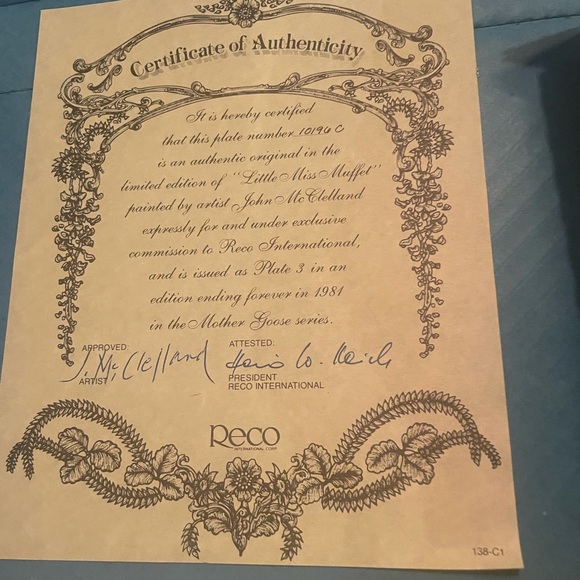 Certificate of Authenticity
It is hereby certified
that this plate number 10196 C
is an authentic original in the
limited edition of "Little Miss Muffet"
painted by artist John McClelland
expressly for and under exclusive
commission to Reco International,
and is issued as Plate 3 in an
edition ending forever in 1981
in the Mother Goose series.
APPROVED:
J. McClelland
ARTIST
ATTESTED:
PRESIDENT
RECO INTERNATIONAL
Reco
INTERNATIONAL CORP.
138-C1